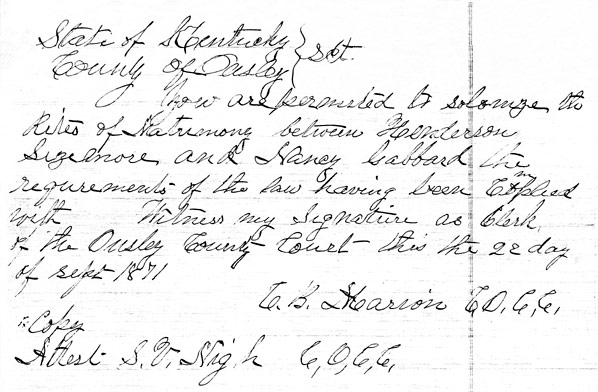 State of Kentucky } Sct.
County of Owsley
You are permited to solomze the
Rites of Matrimony between Henderson
Sizemore and Nancy Gabbard the
requrements of the law having been Complied
with Witness my Signature as Clerk
of the Owsley County Court this the 22 day
of Sept 1871
C. B. Marion C,O,C,C,
"Copy
Attest S. V. High C,O,C,C,